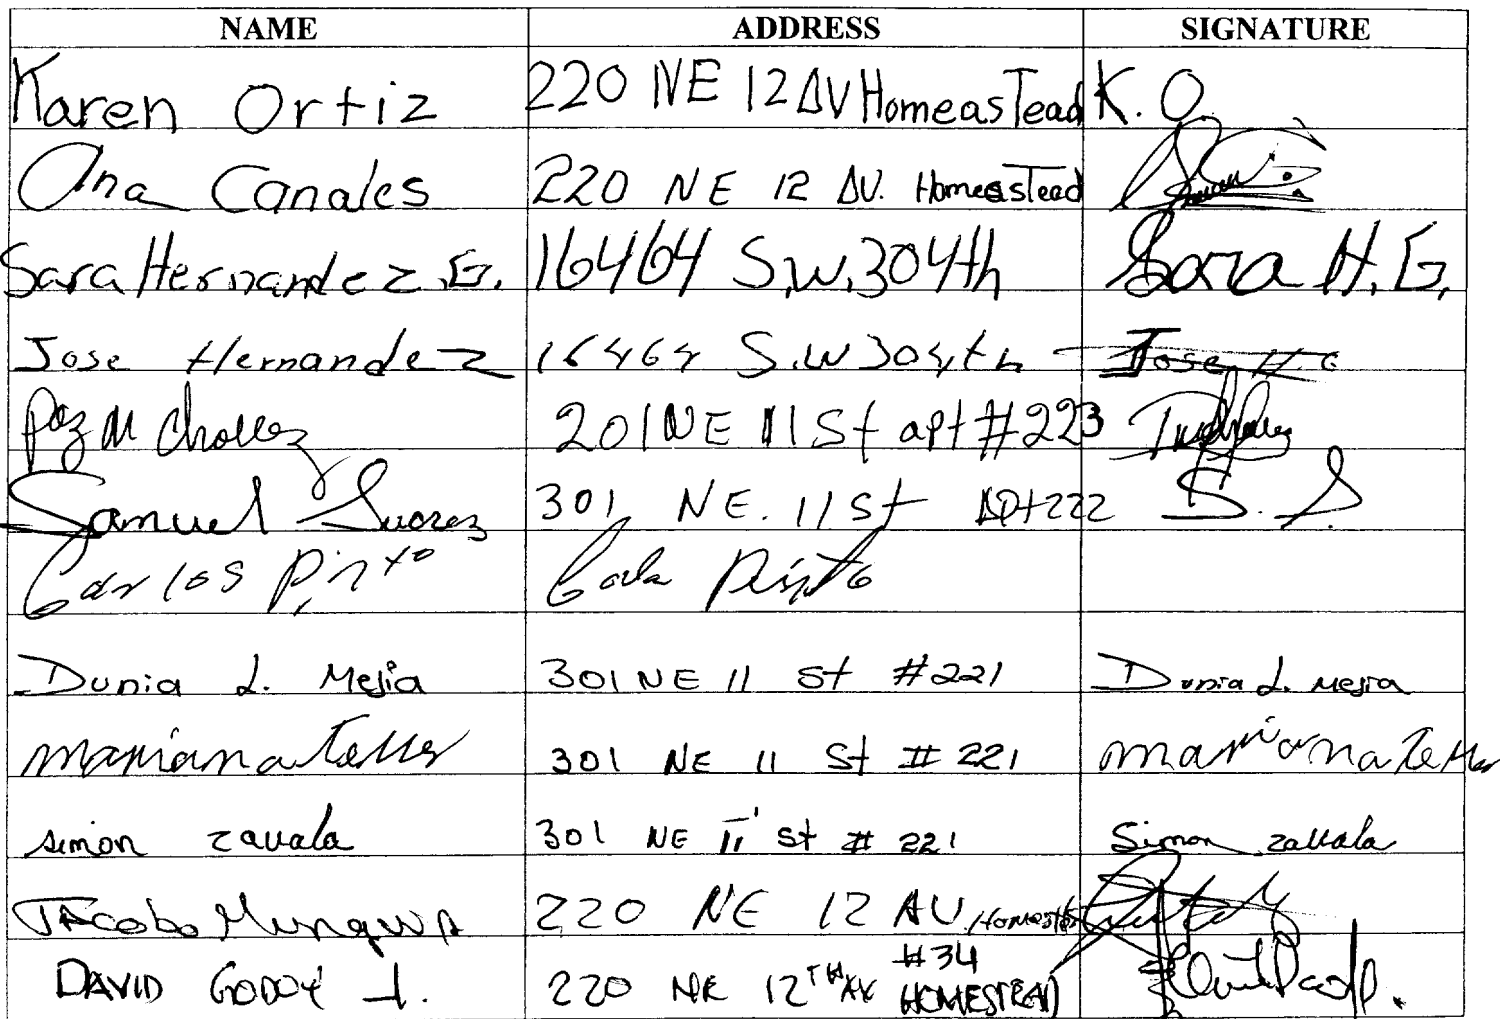 NAME ADDRESS SIGNATURE
Karen Ortiz 220 NE 12 AV Homeastead K. O.
Ana Canales 220 NE 12 AV. Homeastead
Sara Hernandez G. 16464 S.W. 304th Sara H. G.
Jose Hernandez 16464 S.W 304th Jose H G
Paz M 201 NE 11 St apt #223
Samuel Suarez 301 NE. 11 St APt 222 S. S.
Carlos Pinto Carlos Pinto
Dunia L. Mejia 301 NE 11 St #221 Dunia L. Mejia
mariana Teller 301 NE 11 St # 221 mariana Teller
simon zavala 301 NE 11 St # 221 Simon zavala
Jacobo Munguia 220 NE 12 AV Homestead
DAVID GODOY J. 220 NE 12TH AV #34 HOMESTEAD